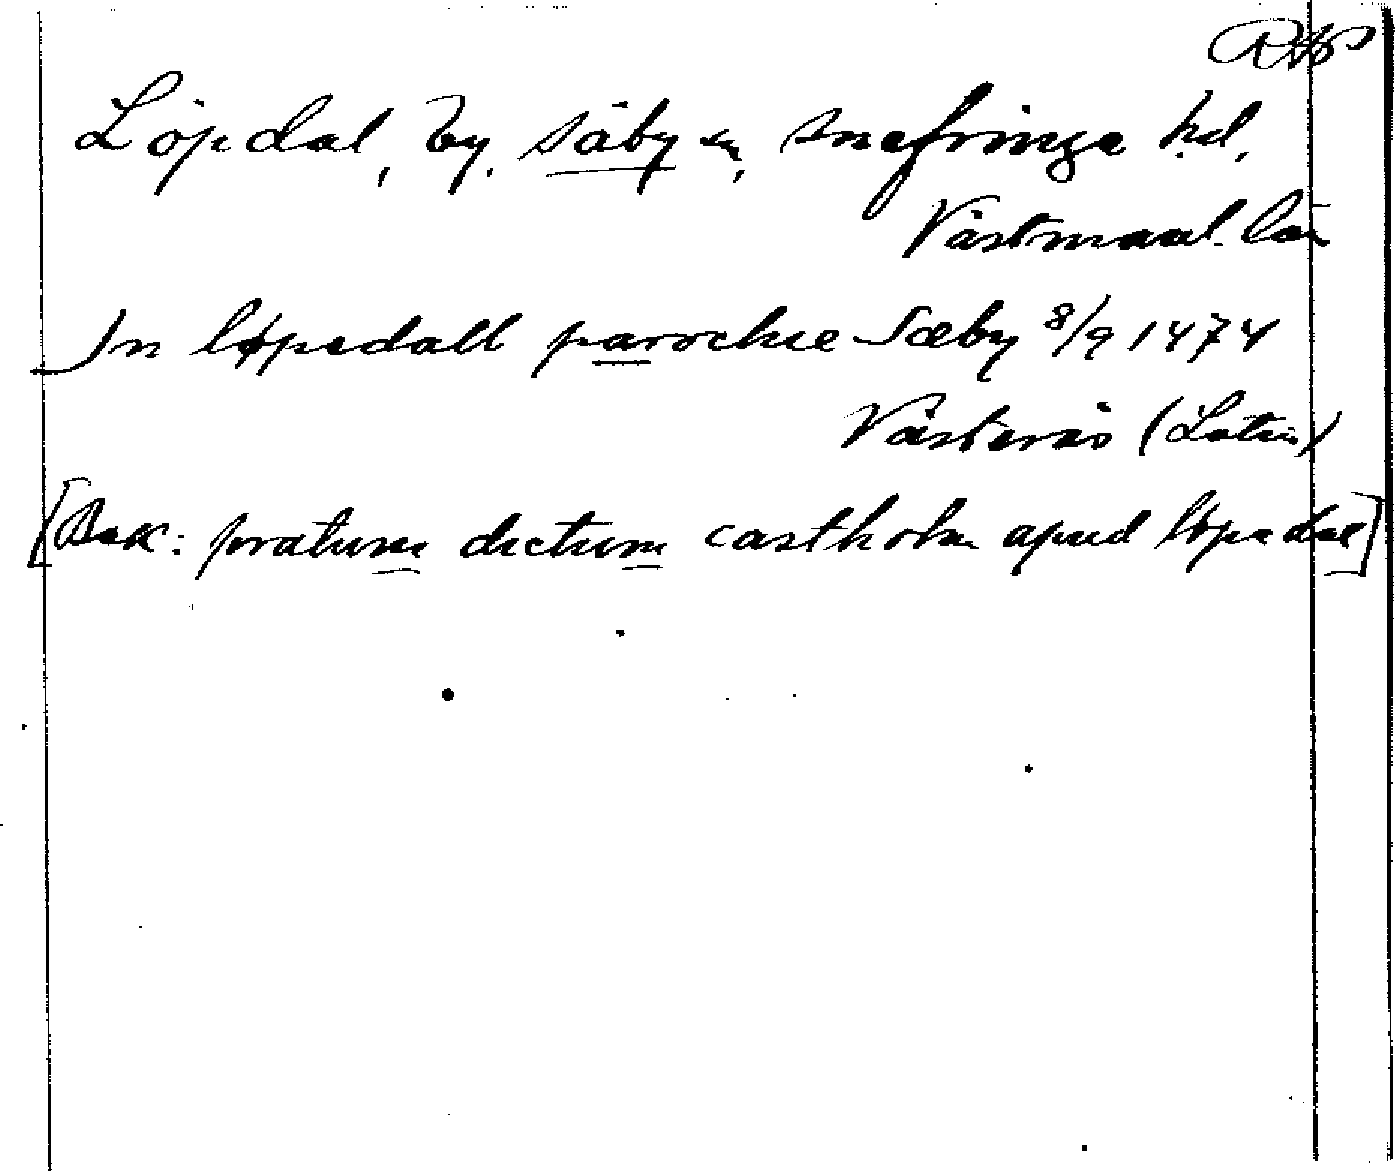 RAP
Löpdal, by, Säby sn, Snefringe hd,
Västmanl. län
In løpedall parochie Sæby 8/9 1474
Västerås (Latin)
[Bak: pratum dictum castholm apud løpedal]